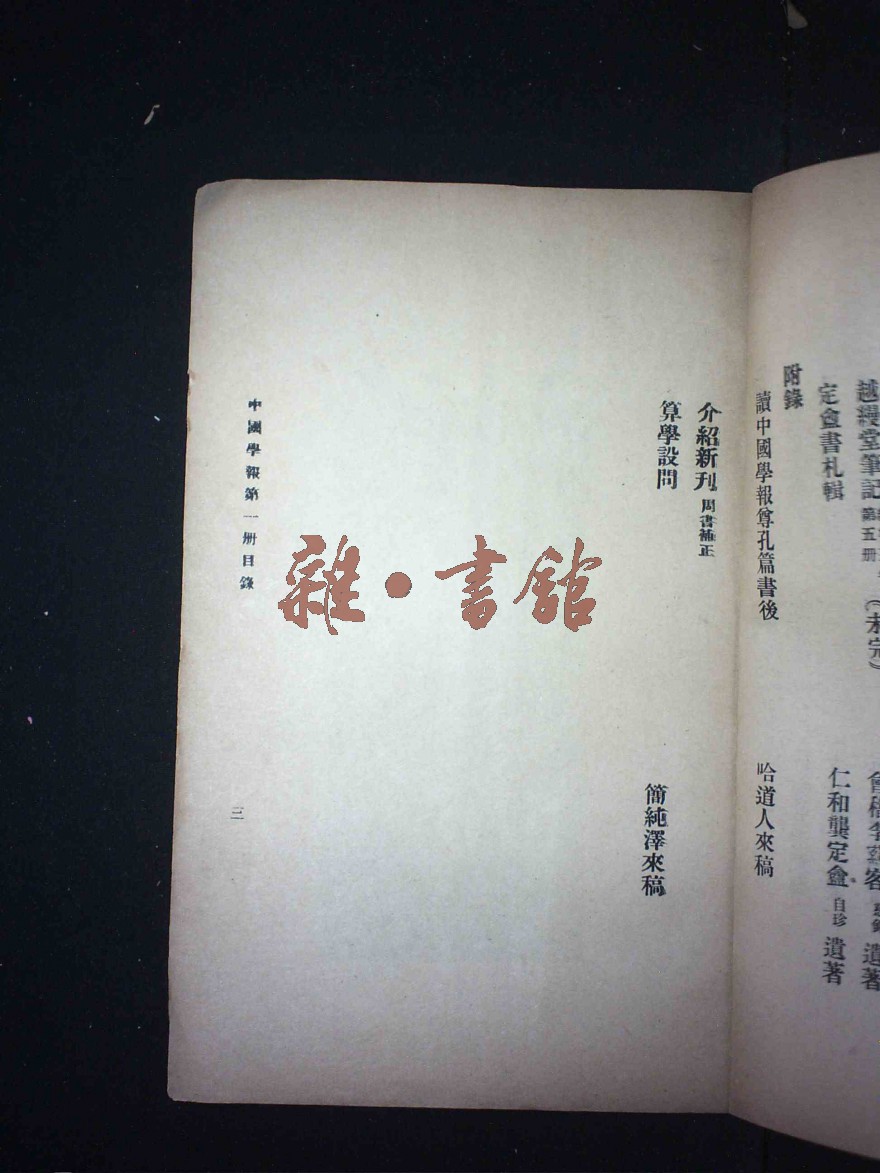 越縵堂筆記 第五册 (未完) 遺著
定盦書札輯 仁和龔定盦 自珍 遺著
附錄
讀中國學報尊孔篇書後 哈道人來稿
介紹新刊 周書補正
算學設問 簡純澤來稿
中國學報第一册目錄 三
雜·書館